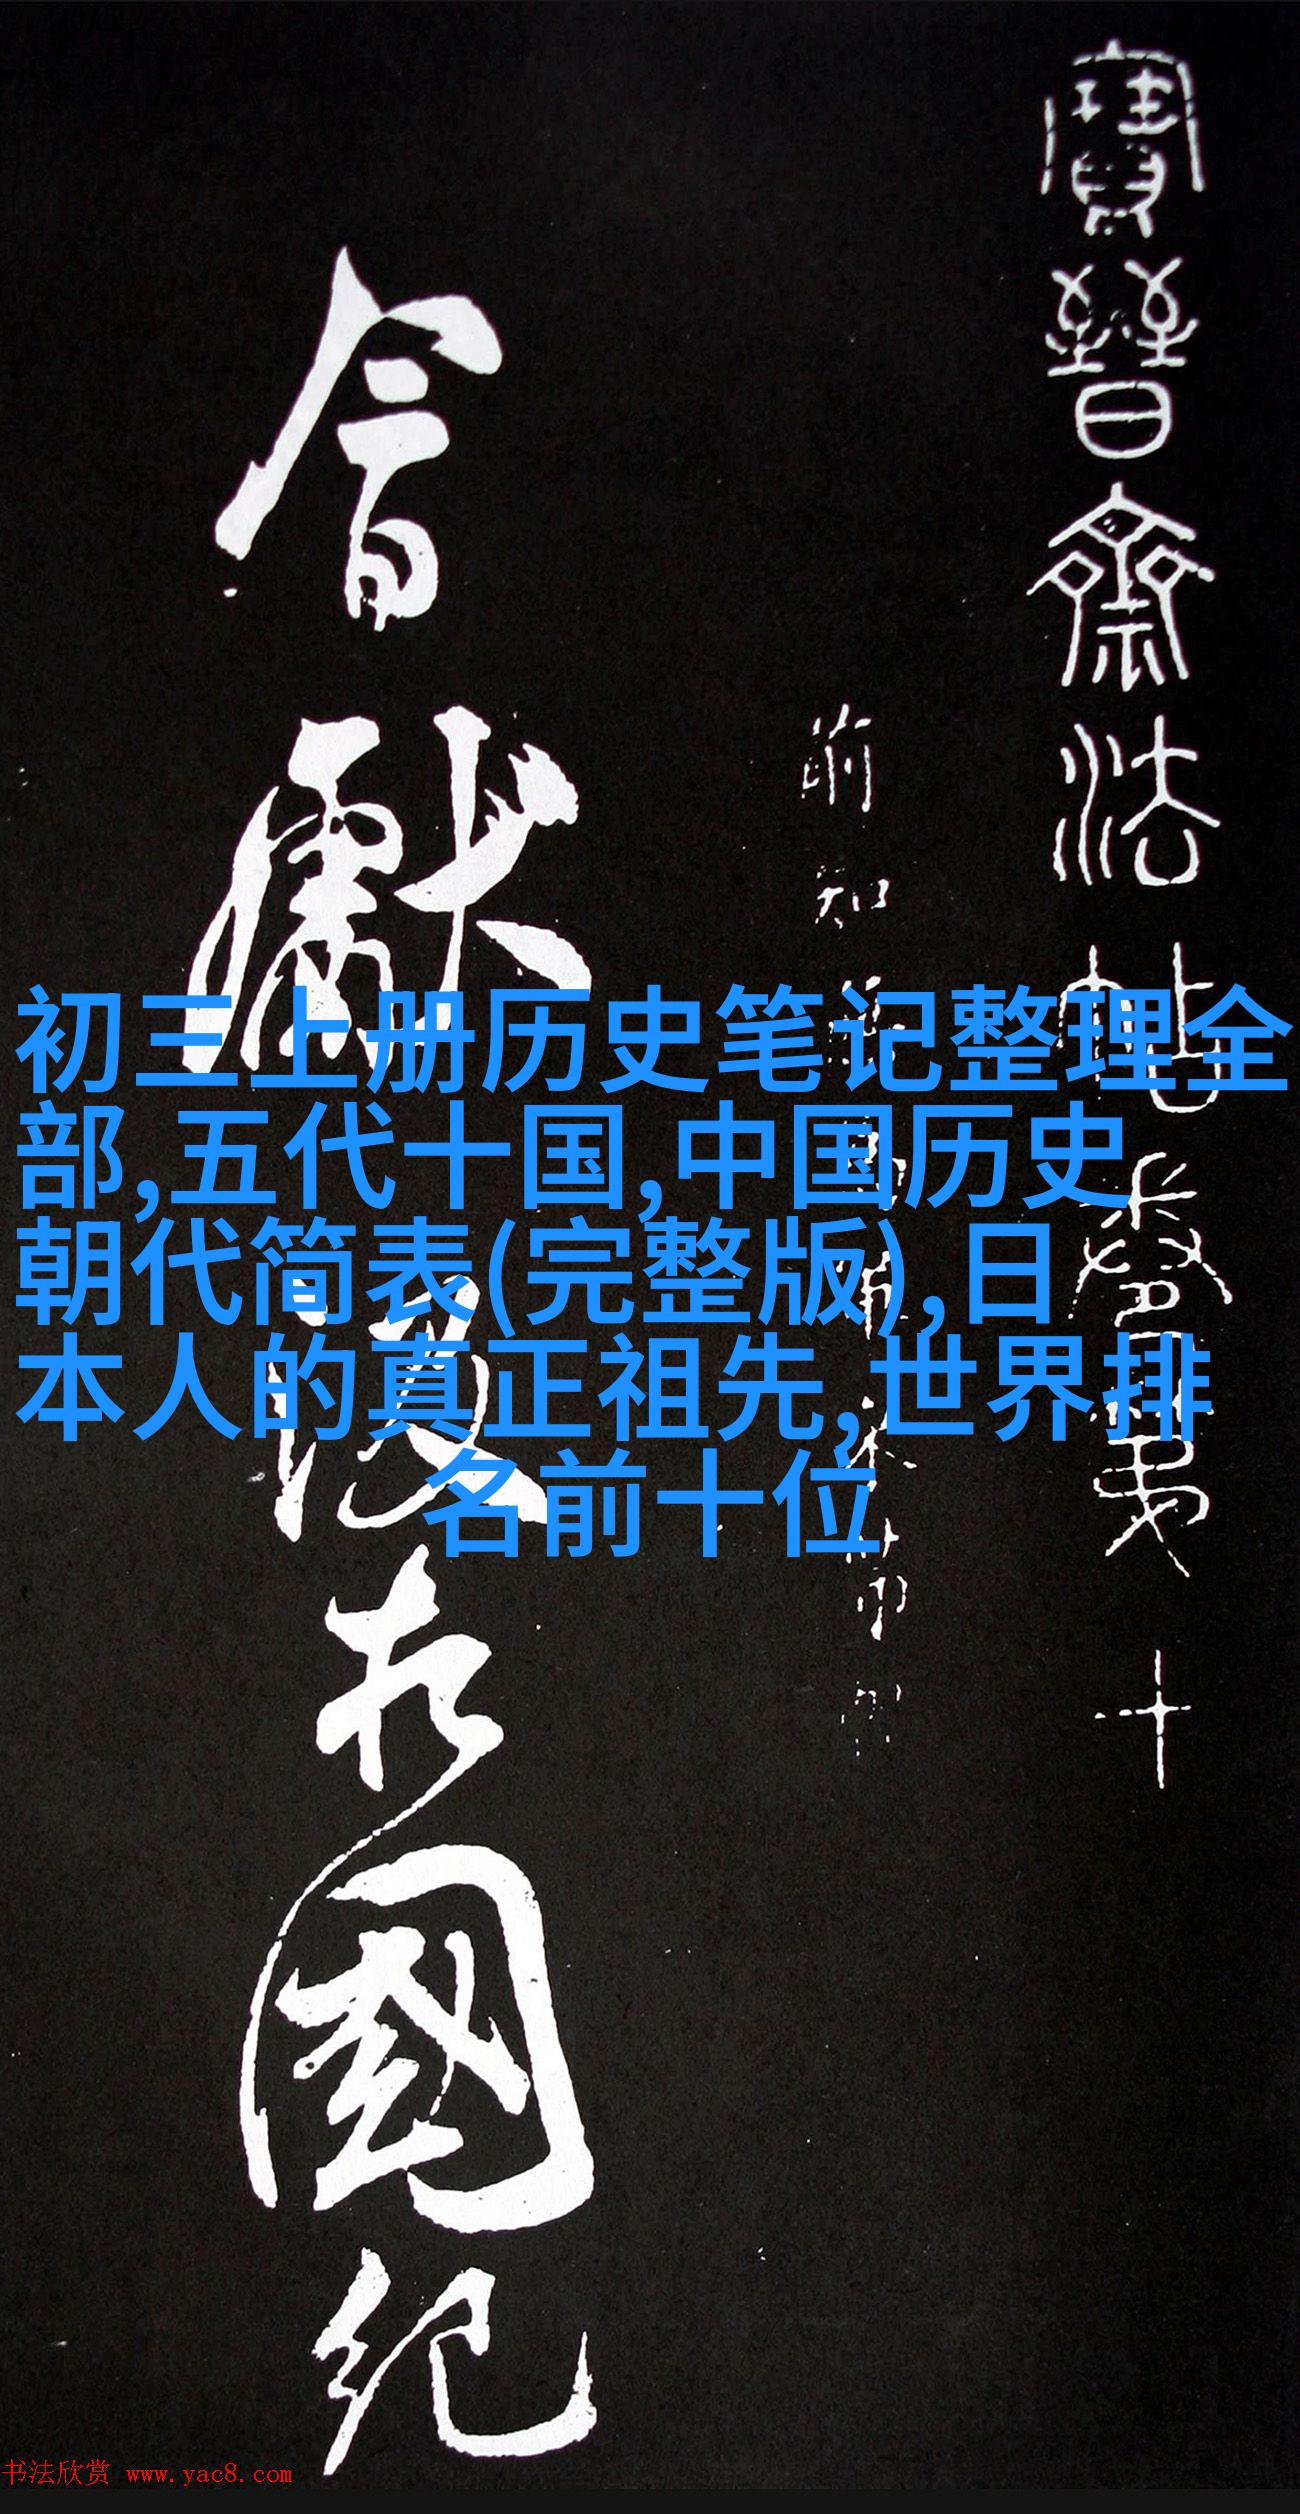 寶晉齋法帖卷第十
會獻後相國紀
初三上册历史笔记整理全
部,五代十国,中国历史
朝代简表(完整版),日
本人的真正祖先,世界排
名前十位
书法欣赏 www.yac8.com